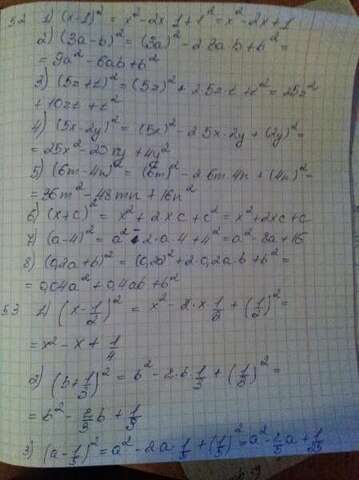 52 1) (x-1)² = x²-2x·1+1² = x²-2x+1
2) (3a-b)² = (3a)²-2·3a·b+b² =
= 9a²-6ab+b²
3) (5z+t)² = (5z)²+2·5z·t+t² = 25z²
+10zt+t²
4) (5x-2y)² = (5x)²-2·5x·2y+(2y)² =
= 25x²-20xy+4y²
5) (6m-4n)² = (6m)²-2·6m·4n+(4n)² -
= 36m²-48mn+16n²
6) (x+c)² = x²+2xc+c² = x²+2xc+c
7) (a-4)² = a²-2·a·4+4² = a²-8a+16
8) (0,2a+b)² = (0,2a)²+2·0,2a·b+b² =
= 0,04a²+0,4ab+b²
53 1) (x-1/2)² = x²-2·x·1/2+(1/2)² =
= x²-x+1/4
2) (b+1/3)² = b²-2·b·1/3+(1/3)² =
= b²-2/3b+1/9
3) (a-1/5)² = a²-2a·1/5+(1/5)² = a²-2/5a+1/25